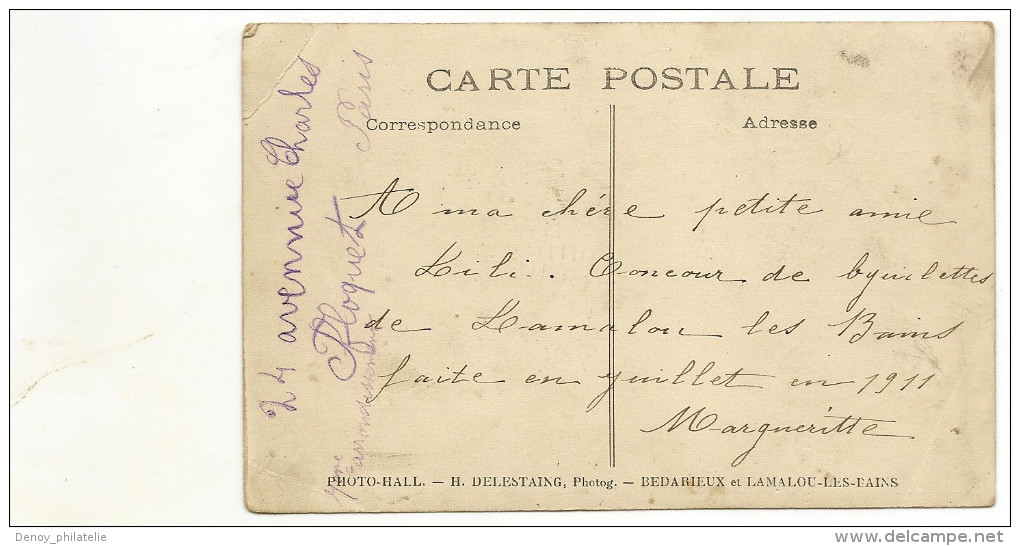 CARTE POSTALE
Correspondance
Adresse
A ma chére petite amie
Lili. Concour de byciclettes
de Lamalou les Bains
faite en juillet en 1911
Margueritte
PHOTO-HALL. — H. DELESTAING, Photog. — BEDARIEUX et LAMALOU-LES-BAINS
24 avennue Charles
Floquet Paris
7eme arrondissement
Denoy_philatelie
delcampe.net